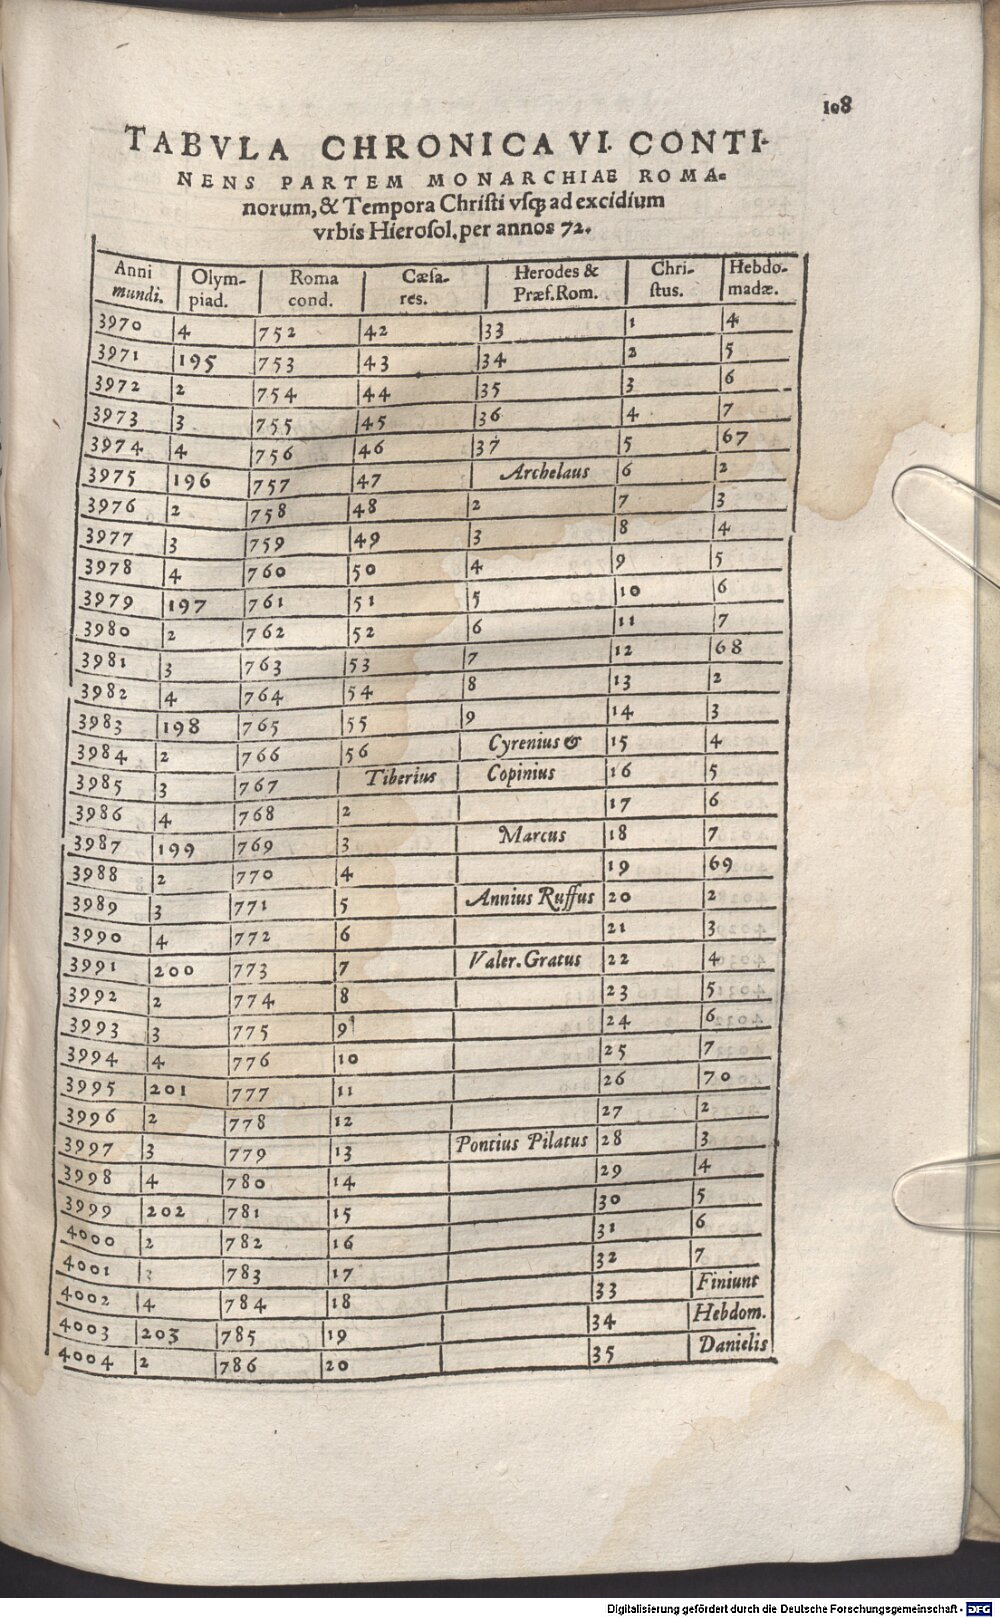 108
TABVLA CHRONICA VI. CONTI-
NENS PARTEM MONARCHIAE ROMA-
norum, & Tempora Chriſti vſq̃ ad excidium
vrbis Hieroſol. per annos 72.
Anni mundi. | Olym-piad. | Roma cond. | Cæſa-res. | Herodes & Præf. Rom. | Chri-ſtus. | Hebdo-madæ.
3970 | 4 | 752 | 42 | 33 | 1 | 4
3971 | 195 | 753 | 43 | 34 | 2 | 5
3972 | 2 | 754 | 44 | 35 | 3 | 6
3973 | 3 | 755 | 45 | 36 | 4 | 7
3974 | 4 | 756 | 46 | 37 | 5 | 67
3975 | 196 | 757 | 47 | Archelaus | 6 | 2
3976 | 2 | 758 | 48 | 2 | 7 | 3
3977 | 3 | 759 | 49 | 3 | 8 | 4
3978 | 4 | 760 | 50 | 4 | 9 | 5
3979 | 197 | 761 | 51 | 5 | 10 | 6
3980 | 2 | 762 | 52 | 6 | 11 | 7
3981 | 3 | 763 | 53 | 7 | 12 | 68
3982 | 4 | 764 | 54 | 8 | 13 | 2
3983 | 198 | 765 | 55 | 9 | 14 | 3
3984 | 2 | 766 | 56 | Cyrenius & | 15 | 4
3985 | 3 | 767 | Tiberius | Copinius | 16 | 5
3986 | 4 | 768 | 2 | | 17 | 6
3987 | 199 | 769 | 3 | Marcus | 18 | 7
3988 | 2 | 770 | 4 | | 19 | 69
3989 | 3 | 771 | 5 | Annius Ruffus | 20 | 2
3990 | 4 | 772 | 6 | | 21 | 3
3991 | 200 | 773 | 7 | Valer. Gratus | 22 | 4
3992 | 2 | 774 | 8 | | 23 | 5
3993 | 3 | 775 | 9 | | 24 | 6
3994 | 4 | 776 | 10 | | 25 | 7
3995 | 201 | 777 | 11 | | 26 | 70
3996 | 2 | 778 | 12 | | 27 | 2
3997 | 3 | 779 | 13 | Pontius Pilatus | 28 | 3
3998 | 4 | 780 | 14 | | 29 | 4
3999 | 202 | 781 | 15 | | 30 | 5
4000 | 2 | 782 | 16 | | 31 | 6
4001 | | 783 | 17 | | 32 | 7
4002 | 4 | 784 | 18 | | 33 | Finiunt
4003 | 203 | 785 | 19 | | 34 | Hebdom.
4004 | 2 | 786 | 20 | | 35 | Danielis
Digitalisierung gefördert durch die Deutsche Forschungsgemeinschaft - DFG